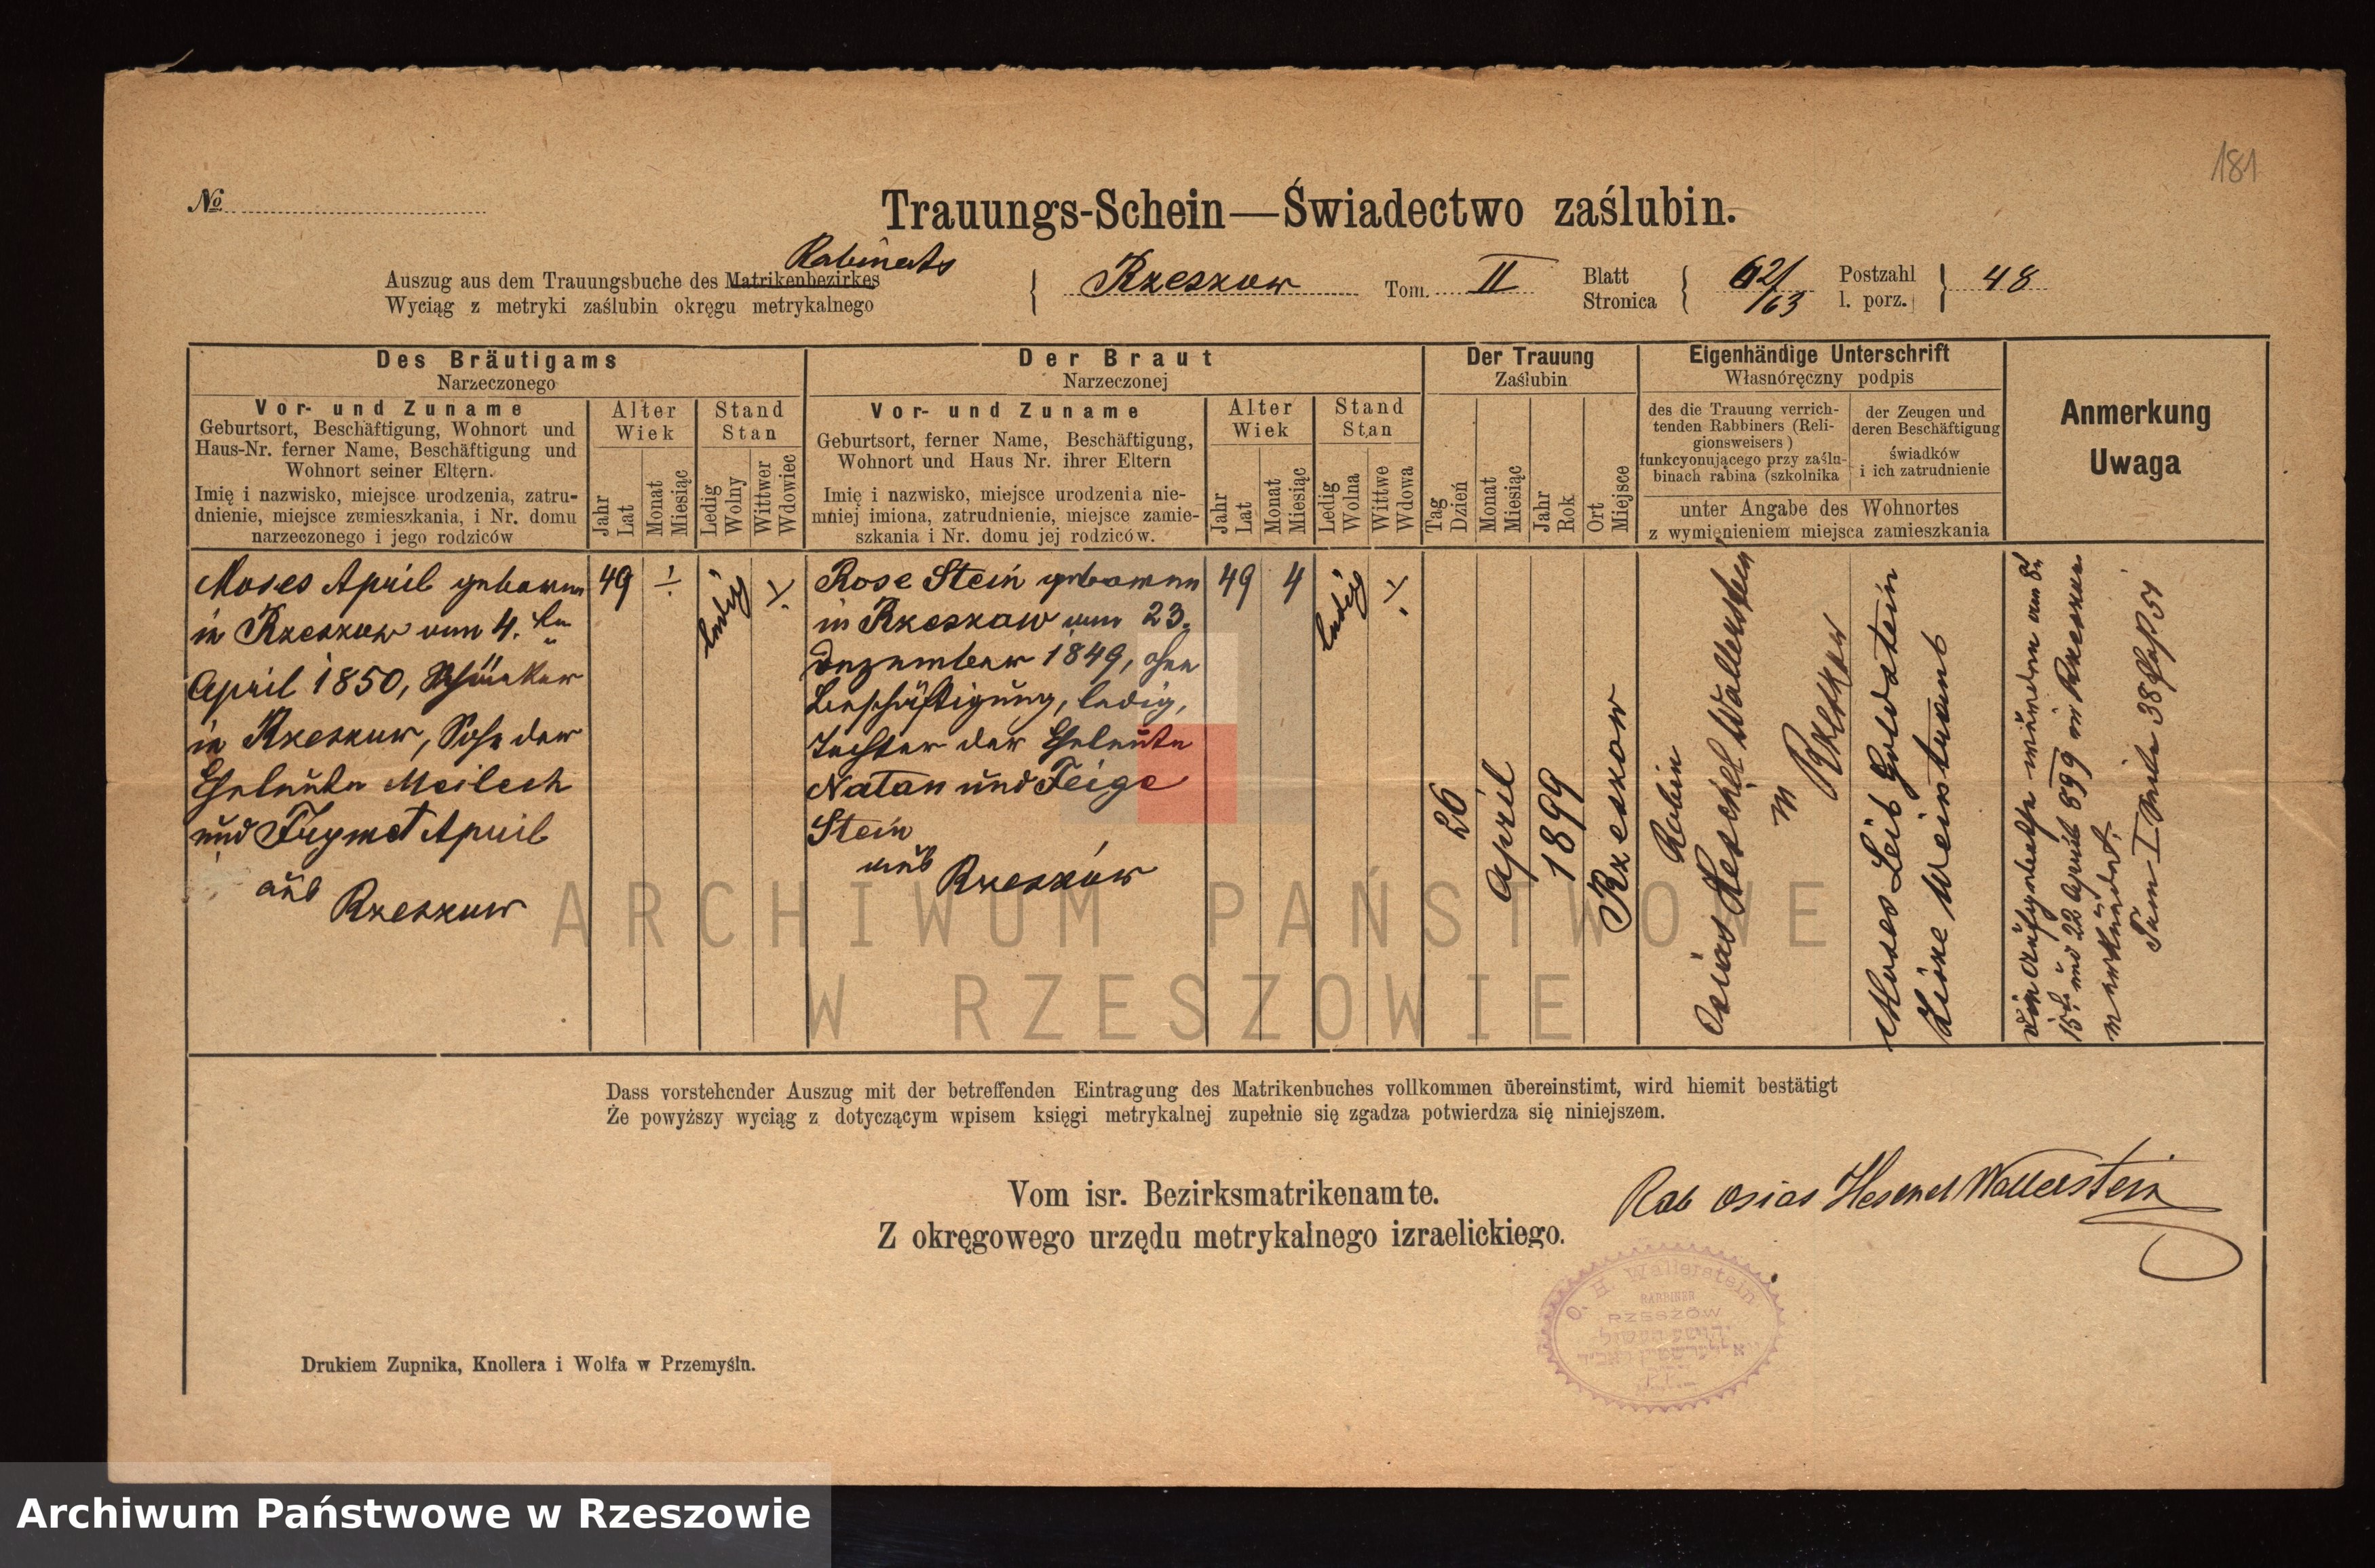 181
No
Trauungs-Schein—Świadectwo zaślubin.
Rabinats
Auszug aus dem Trauungsbuche des Matrikenbezirkes
Wyciąg z metryki zaślubin okręgu metrykalnego
Rzeszow
Tom. II
Blatt
Stronica
62/63
Postzahl
l. porz.
48
Des Bräutigams
Narzeczonego
Vor- und Zuname
Geburtsort, Beschäftigung, Wohnort und
Haus-Nr. ferner Name, Beschäftigung und
Wohnort seiner Eltern.
Imię i nazwisko, miejsce urodzenia, zatru-
dnienie, miejsce zumieszkania, i Nr. domu
narzeczonego i jego rodziców
Alter
Wiek
Jahr
Lat
Monat
Miesiąc
Stand
Stan
Ledig
Wolny
Wittwer
Wdowiec
Der Braut
Narzeczonej
Vor- und Zuname
Geburtsort, ferner Name, Beschäftigung,
Wohnort und Haus Nr. ihrer Eltern
Imię i nazwisko, miejsce urodzenia nie-
mniej imiona, zatrudnienie, miejsce zamie-
szkania i Nr. domu jej rodziców.
Alter
Wiek
Jahr
Lat
Monat
Miesiąc
Stand
Stan
Ledig
Wolna
Wittwe
Wdowa
Der Trauung
Zaślubin
Tag
Dzień
Monat
Miesiąc
Jahr
Rok
Ort
Miejsce
Eigenhändige Unterschrift
Własnóręczny podpis
des die Trauung verrich-
tenden Rabbiners (Reli-
gionsweisers)
funkcyonującego przy zaślu-
binach rabina (szkolnika
der Zeugen und
deren Beschäftigung
świadków
i ich zatrudnienie
unter Angabe des Wohnortes
z wymienieniem miejsca zamieszkania
Anmerkung
Uwaga
Moses April geboren
in Rzeszow am 4. ten
April 1850, Schänker
in Rzeszow, Sohn der
Eheleute Meilech
und Frymet April
aus
Rzeszow
49
ledig
Rose Stein geboren
in Rzeszow am 23.
Dezember 1849, ohne
Beschäftigung, ledig,
Tochter der Eheleute
Natan und Feige
Stein
aus Rzeszów
49
4
ledig
26
April
1899
Rzeszow
Rabin
Osias Heschel Wallerstein
in Rzeszow
Moses Leib Goldstein
Die Aufgebothe wurden am 8t
15t und 22 April 899 in Rzeszow
verkündet.
ARCHIWUM PAŃSTWOWE
W RZESZOWIE
Dass vorstehender Auszug mit der betreffenden Eintragung des Matrikenbuches vollkommen übereinstimt, wird hiemit bestätigt
Że powyższy wyciąg z dotyczącym wpisem księgi metrykalnej zupełnie się zgadza potwierdza się niniejszem.
Vom isr. Bezirksmatrikenamte.
Z okręgowego urzędu metrykalnego izraelickiego.
Rab Osias Heschel Wallerstein
O. H. Wallerstein
RABBINER
RZESZÓW
Drukiem Zupnika, Knollera i Wolfa w Przemyśln.
Archiwum Państwowe w Rzeszowie